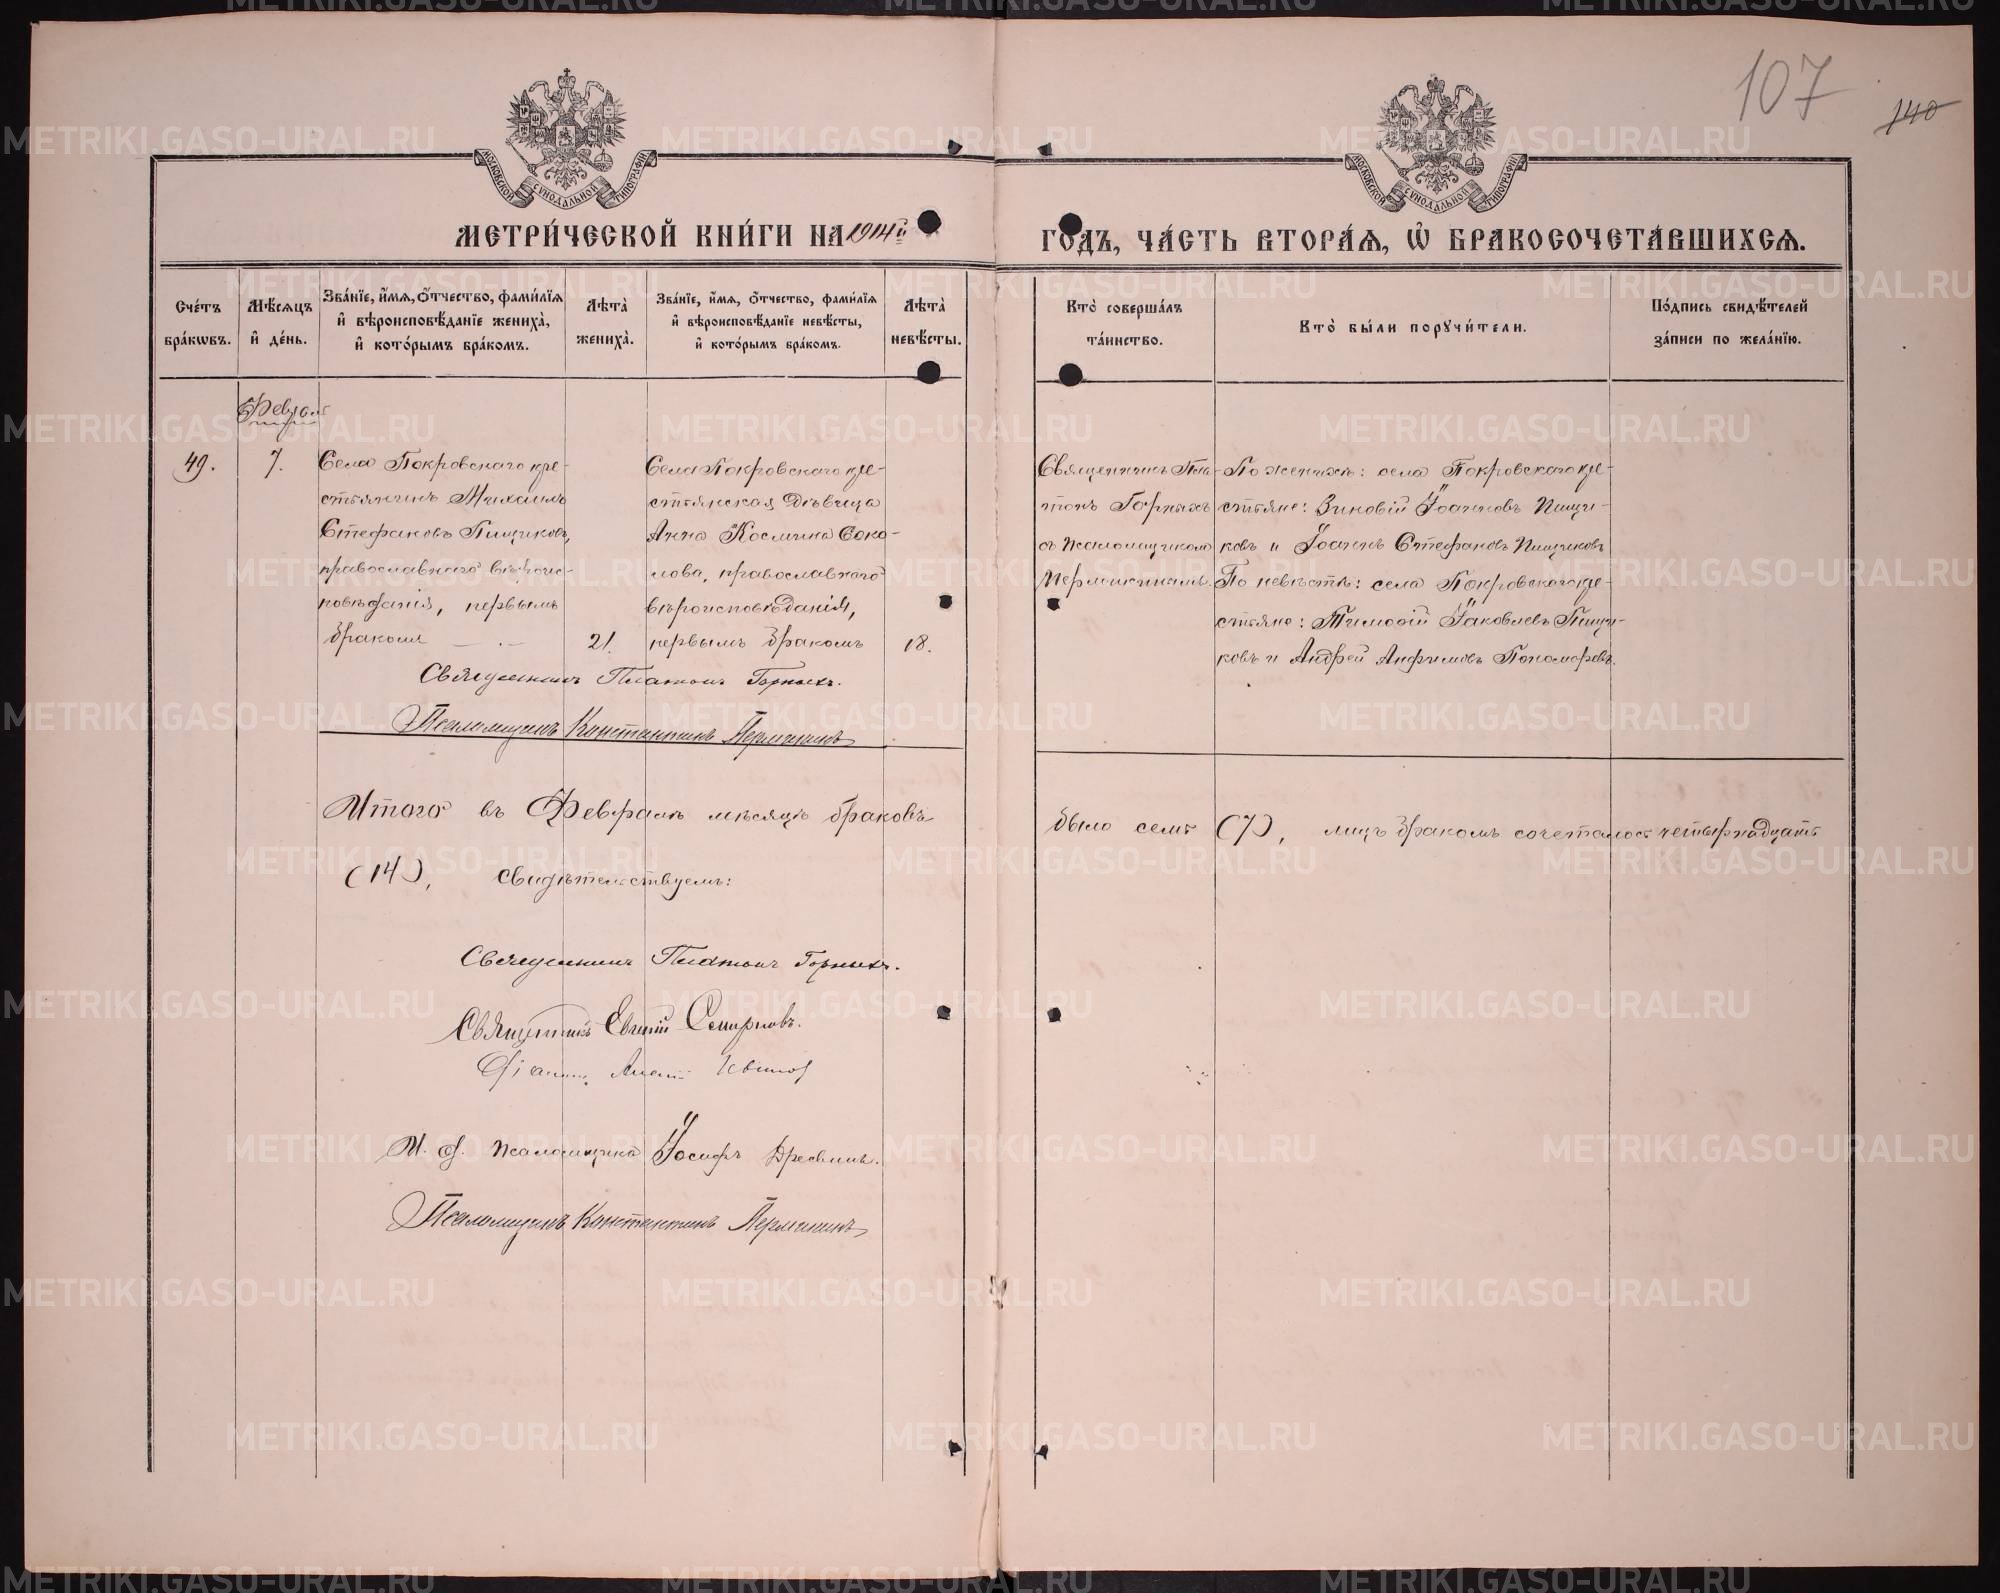 107
140
МОСКОВСКОЙ СУНОДАЛЬНОЙ ТИПОГРАФІИ
МОСКОВСКОЙ СУНОДАЛЬНОЙ ТИПОГРАФІИ
МЕТРИ́ЧЕСКОЙ КНИ́ГИ НА 1914й ГОДЪ, ЧА́СТЬ ВТОРА́Я, Ѡ҆ БРАКОСОЧЕТА́ВШИХСЯ.
Сче́тъ бра́кѡвъ.
Мѣ́сяцъ и҆ де́нь.
Зва́нїе, и҆́мѧ, ѻ҆́тчество, фами́лїѧ и҆ вѣроисповѣ́данїе жениха̀, и҆ кото́рымъ бра́комъ.
Лѣта̀ жениха̀.
Зва́нїе, и҆́мѧ, ѻ҆́тчество, фами́лїѧ и҆ вѣроисповѣ́данїе невѣ́сты, и҆ кото́рымъ бра́комъ.
Лѣта̀ невѣ́сты.
Кто̀ соверша́лъ та́инство.
Кто̀ бы́ли поручи́тели.
По́дпись свидѣ́телей за́писи по жела́нїю.
49.
7.
Села Покровскаго кре-
стьянинъ Михаилъ
Стефановъ Пищиковъ,
православнаго вѣроис-
повѣданія, первымъ
бракомъ
21.
Села Покровскаго кре-
стьянская дѣвица
Анна Космина Соко-
лова, православнаго
вѣроисповѣданія,
первымъ бракомъ
18.
Священникъ Пла-
тонъ Горныхъ
съ псаломщикомъ
Пермикинымъ.
По женихѣ: села Покровскаго кре-
стьяне: Зиновій Іоанновъ Пищи-
ковъ и Іоаннъ Стефановъ Пищиковъ
По невѣстѣ: села Покровскаго кре-
стьяне: Тимофій Іаковлевъ Пищи-
ковъ и Андрей Анфимовъ Пономаревъ.
Священникъ Платонъ Горныхъ.
Псаломщикъ Константинъ Пермикинъ
Итого въ Февралѣ мѣсяцѣ браковъ было семь (7), лицъ бракомъ сочеталось четырнадцать
(14), свидѣтельствуемъ:
Священникъ Платонъ Горныхъ.
Священникъ Евгеній Смирновъ.
Діаконъ
И. д. псаломщика Іосифъ Дресвинъ.
Псаломщикъ Константинъ Пермикинъ
METRIKI.GASO-URAL.RU